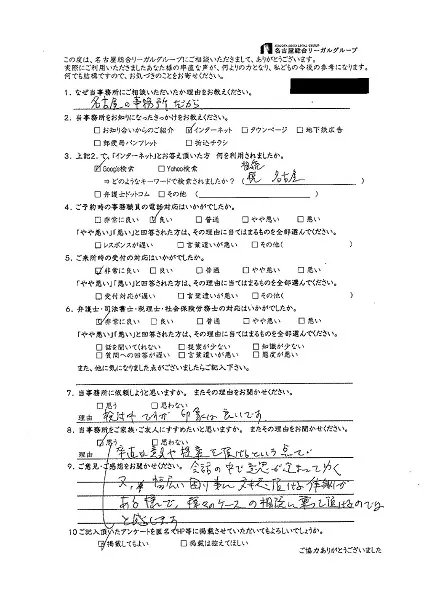 NAGOYA SOGO LEGAL GROUP
名古屋総合リーガルグループ
この度は、名古屋総合リーガルグループにご相談いただきまして、ありがとうございます。
実際にご利用いただきましたあなた様の率直な声が、何よりの力となり、私どもの今後の参考になります。
何でも結構ですので、お気づきのことをお寄せください。
1. なぜ当事務所にご相談いただいたか理由をお教えください。
名古屋の事務所だから
2. 当事務所をお知りになったきっかけをお教えください。
□お知り合いからのご紹介 ☑インターネット □タウンページ □地下鉄広告
□郵便局パンフレット □折込チラシ
3. 上記2. で、「インターネット」とお答え頂いた方 何を利用されましたか。
☑Google検索 □Yahoo検索
⇒どのようなキーワードで検索されましたか? ( 相続 税 名古屋 )
□弁護士ドットコム □その他 ( )
4. ご予約時の事務職員の電話対応はいかがでしたか。
□非常に良い ☑良い □普通 □やや悪い □悪い
「やや悪い」「悪い」と回答された方は、その理由に当てはまるものを全部選んでください。
□レスポンスが遅い □言葉遣いが悪い □その他( )
5. ご来所時の受付の対応はいかがでしたか。
☑非常に良い □良い □普通 □やや悪い □悪い
「やや悪い」「悪い」と回答された方は、その理由に当てはまるものを全部選んでください。
□受付対応が遅い □言葉遣いが悪い □その他( )
6. 弁護士・司法書士・税理士・社会保険労務士の対応はいかがでしたか。
☑非常に良い □良い □普通 □やや悪い □悪い
「やや悪い」「悪い」と回答された方は、その理由に当てはまるものを全部選んでください。
□話を聞いてくれない □提案が少ない □知識が少ない
□質問への回答が遅い □言葉遣いが悪い □態度が悪い
また、他に気になりました点がございましたらご記入下さい。
7. 当事務所に依頼しようと思いますか。 またその理由をお聞かせください。
□思う □思わない
理由 検討中ですが 印象は良いです
8. 当事務所をご家族・ご友人にすすめたいと思いますか。 またその理由をお聞かせください。
☑思う □思わない
理由 率直な意見や提案を頂けるという点で
9. ご意見・ご感想をお聞かせください。 会話の中で
又、幅広い困り事に対応頂ける体制が
ある様で、様々なケースの相談に乗って頂けるのでは
と感じます
10ご記入頂いたアンケートを匿名でHP等に掲載させていただいてもよろしいでしょうか。
☑掲載してもよい □掲載は控えてほしい
ご協力ありがとうございました